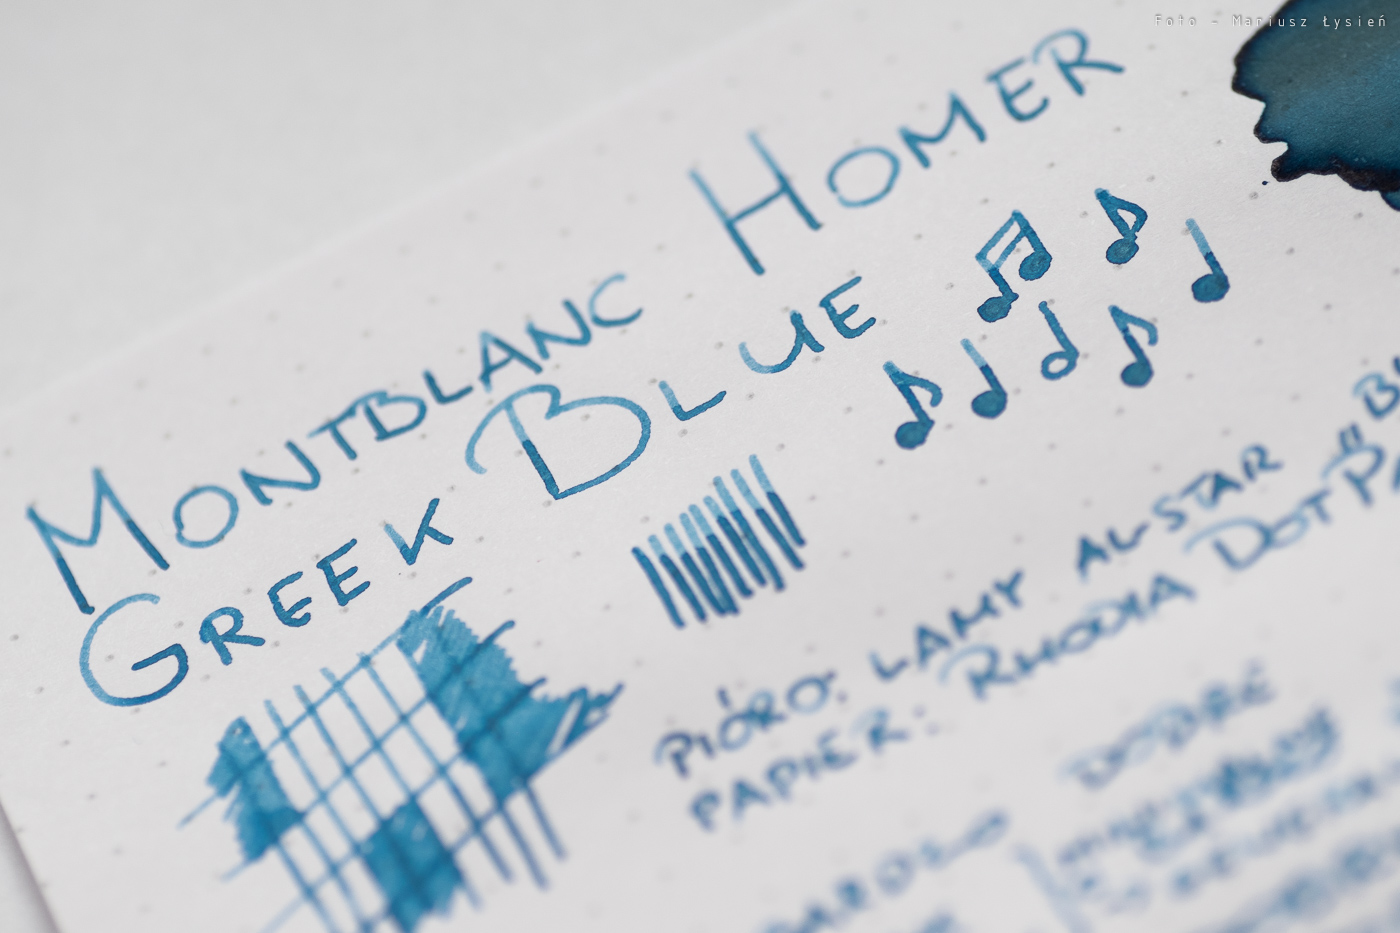 Foto - Mariusz Łysień
MONTBLANC HOMER
GREEK BLUE
PIÓRO: LAMY AL-STAR "B
PAPIER: RHODIA DOTPA
DOBRE